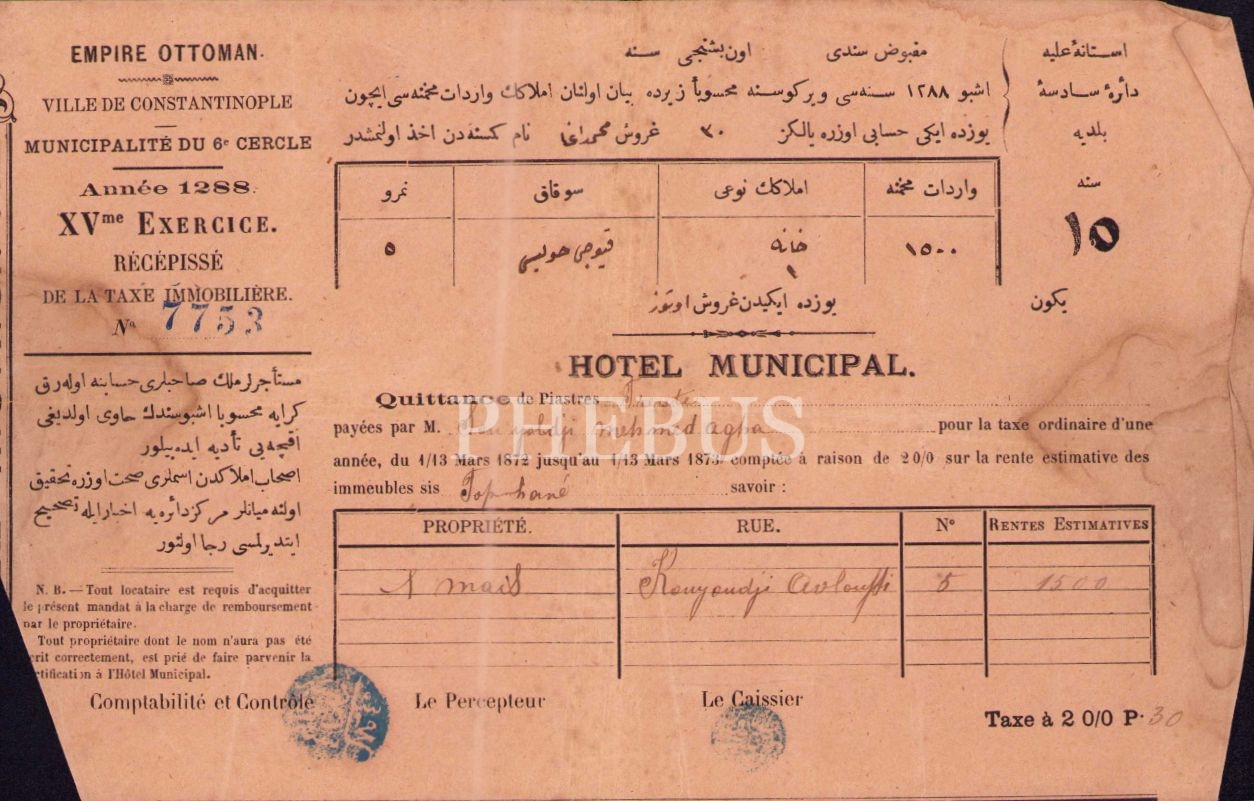 EMPIRE OTTOMAN.
VILLE DE CONSTANTINOPLE
MUNICIPALITÉ DU 6e CERCLE
Année 1288.
XVme EXERCICE.
RÉCÉPISSÉ
DE LA TAXE IMMOBILIÈRE.
No. 7753
مستأجرلر ملك صاحبلری حسابنه اوله‌رق
كرایه محسوبا اشبو سندك حاوی اولدیغی
اقچه‌یی تأدیه ایده‌بیلور
اصحاب املاكدن اسملری صحت اوزره تحقیق
اولنه‌میانلر مركز دائره‌یه اخبار ایله تصحیح
ایتدیرلمسی رجا اولنور
N. B. — Tout locataire est requis d'acquitter
le présent mandat à la charge de remboursement
par le propriétaire.
Tout propriétaire dont le nom n'aura pas été
écrit correctement, est prié de faire parvenir la
rectification à l'Hôtel Municipal.
استانهٔ علیه
دائرهٔ سادسهٔ
بلدیه
سنه
١٥
مقبوض سندی اون بشنجی سنه
اشبو ١٢٨٨ سنه‌سی ویركوسنه محسوباً زیرده بیان اولنان املاكك واردات مخمنه‌سی ایچون
یوزده ایكی حسابی اوزره یالكز ٣٠ غروش محمد اغا نام كمسنه‌دن اخذ اولنمشدر
واردات مخمنه املاكك نوعی سوقاق نمرو
١٥٠٠ خانه ١ قیوجی حولیسی ٥
یكون یوزده ایكیدن غروش اوتوز
HOTEL MUNICIPAL.
Quittance de Piastres Trente
payées par M. Mehmed agha pour la taxe ordinaire d'une
année, du 1/13 Mars 1872 jusqu'au 1/13 Mars 1873 comptée à raison de 2 0/0 sur la rente estimative des
immeubles sis Top-hané savoir :
PROPRIÉTÉ. RUE. No RENTES ESTIMATIVES
1 mais Kouyoudji Avloussi 5 1500
Comptabilité et Contrôle Le Percepteur Le Caissier
Taxe à 2 0/0 P. 30
PHEBUS